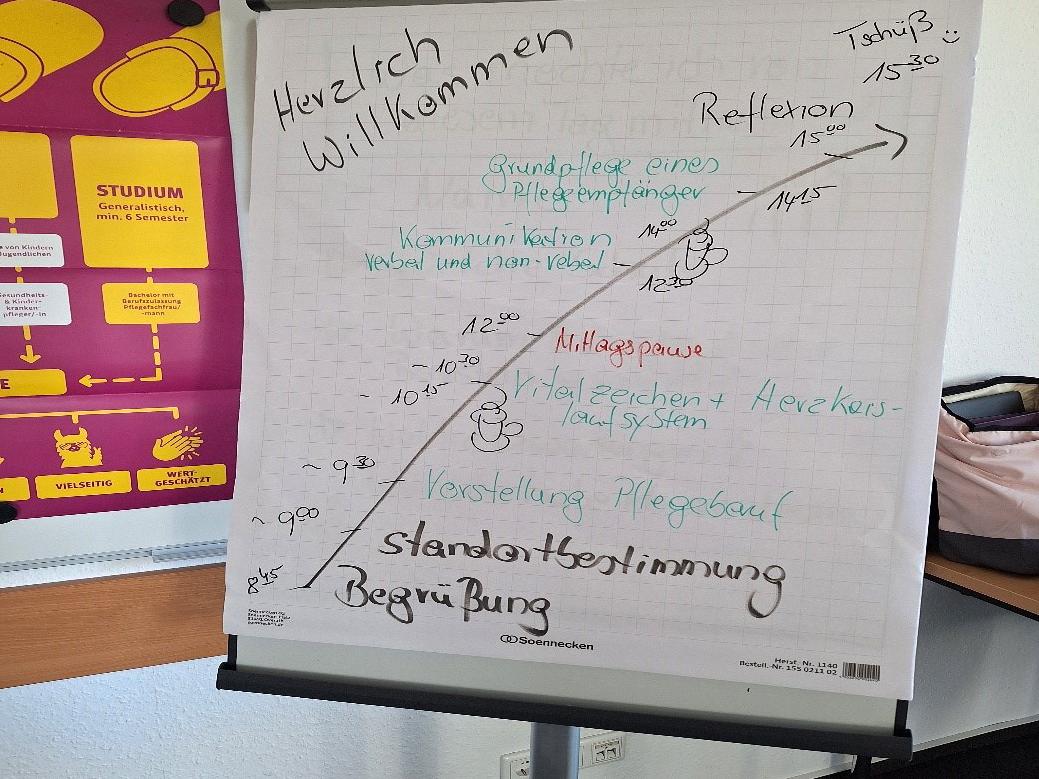 STUDIUM
Generalistisch,
min. 6 Semester
e von Kindern
ugendlichen
esundheits-
& Kinder-
kranken-
pfleger/-in
Bachelor mit
Berufszulassung
Pflegefachfrau/
-mann
E
N
VIELSEITIG
WERT-
GESCHÄTZT
Herzlich
Willkommen
Tschüß
15 30
Reflexion
15 00
Grundpflege eines
Pflegeempfänger
14 15
14 00
Kommunikation
verbal und non-vebal
12 30
12 00
Mittagspause
~ 10 30
~ 10 15
Vitalzeichen + Herzkeis-
laufsystem
~ 9 30
Vorstellung Pflegeberuf
~ 9 00
Standortbestimmung
8 45
Begrüßung
Soennecken
Herst. Nr. 1140
Bestell.-Nr. 155 0211 02